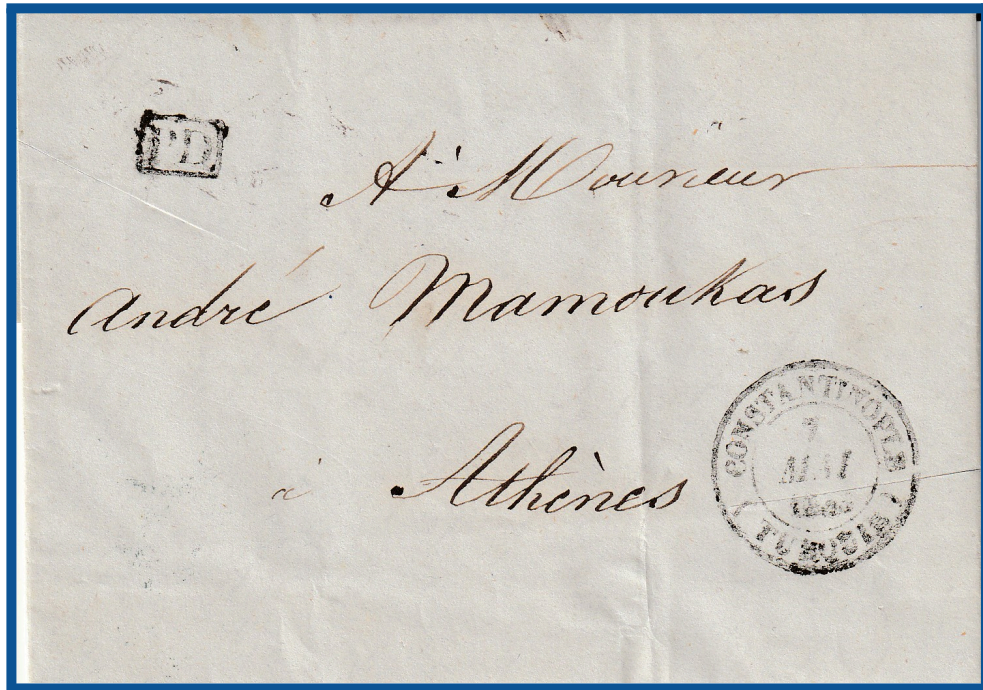 PD
A Monsieur
André Mamoukas
à Athènes
CONSTANTINOPLE
7
MAI
(TURQUIE)